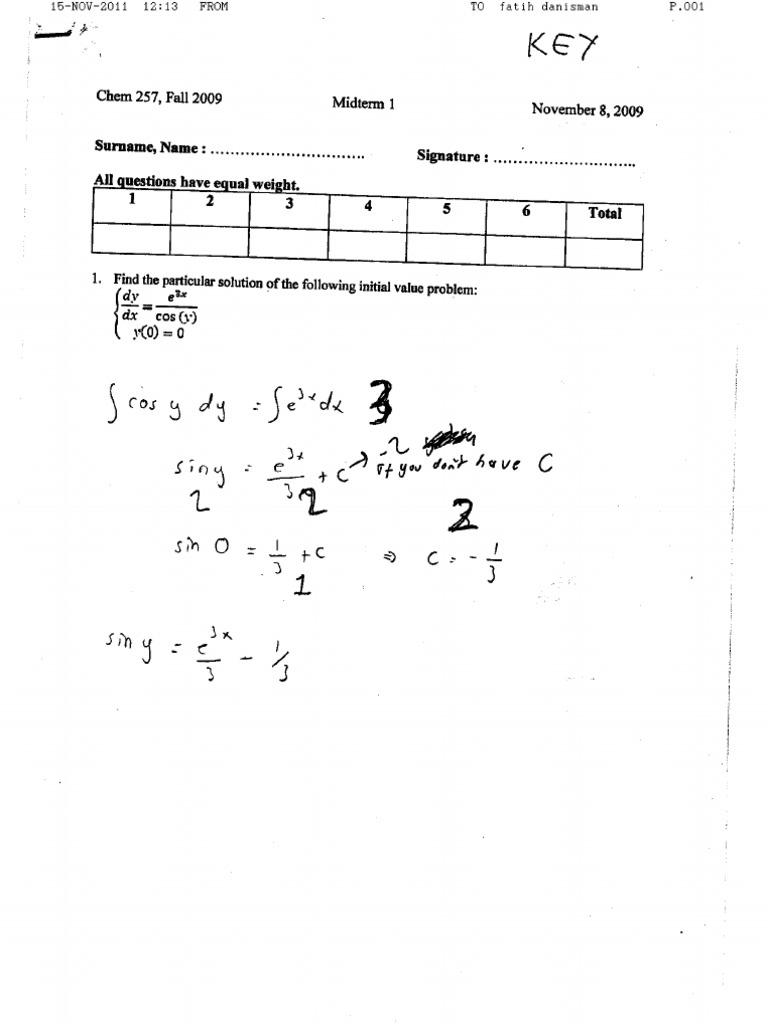 15-NOV-2011 12:13 FROM TO fatih danisman P.001
KEY
Chem 257, Fall 2009 Midterm 1 November 8, 2009
Surname, Name : ................................ Signature : ................................
All questions have equal weight.
1 2 3 4 5 6 Total
1. Find the particular solution of the following initial value problem:
{dy/dx = e^3x/cos (y)
y(0) = 0
∫ cos y dy = ∫e^3x dx 3
sin y = e^3x/3 + C → -2 If you don't have C
2 2
2
sin 0 = 1/3 + C ⇒ C = - 1/3
1
sin y = e^3x/3 - 1/3